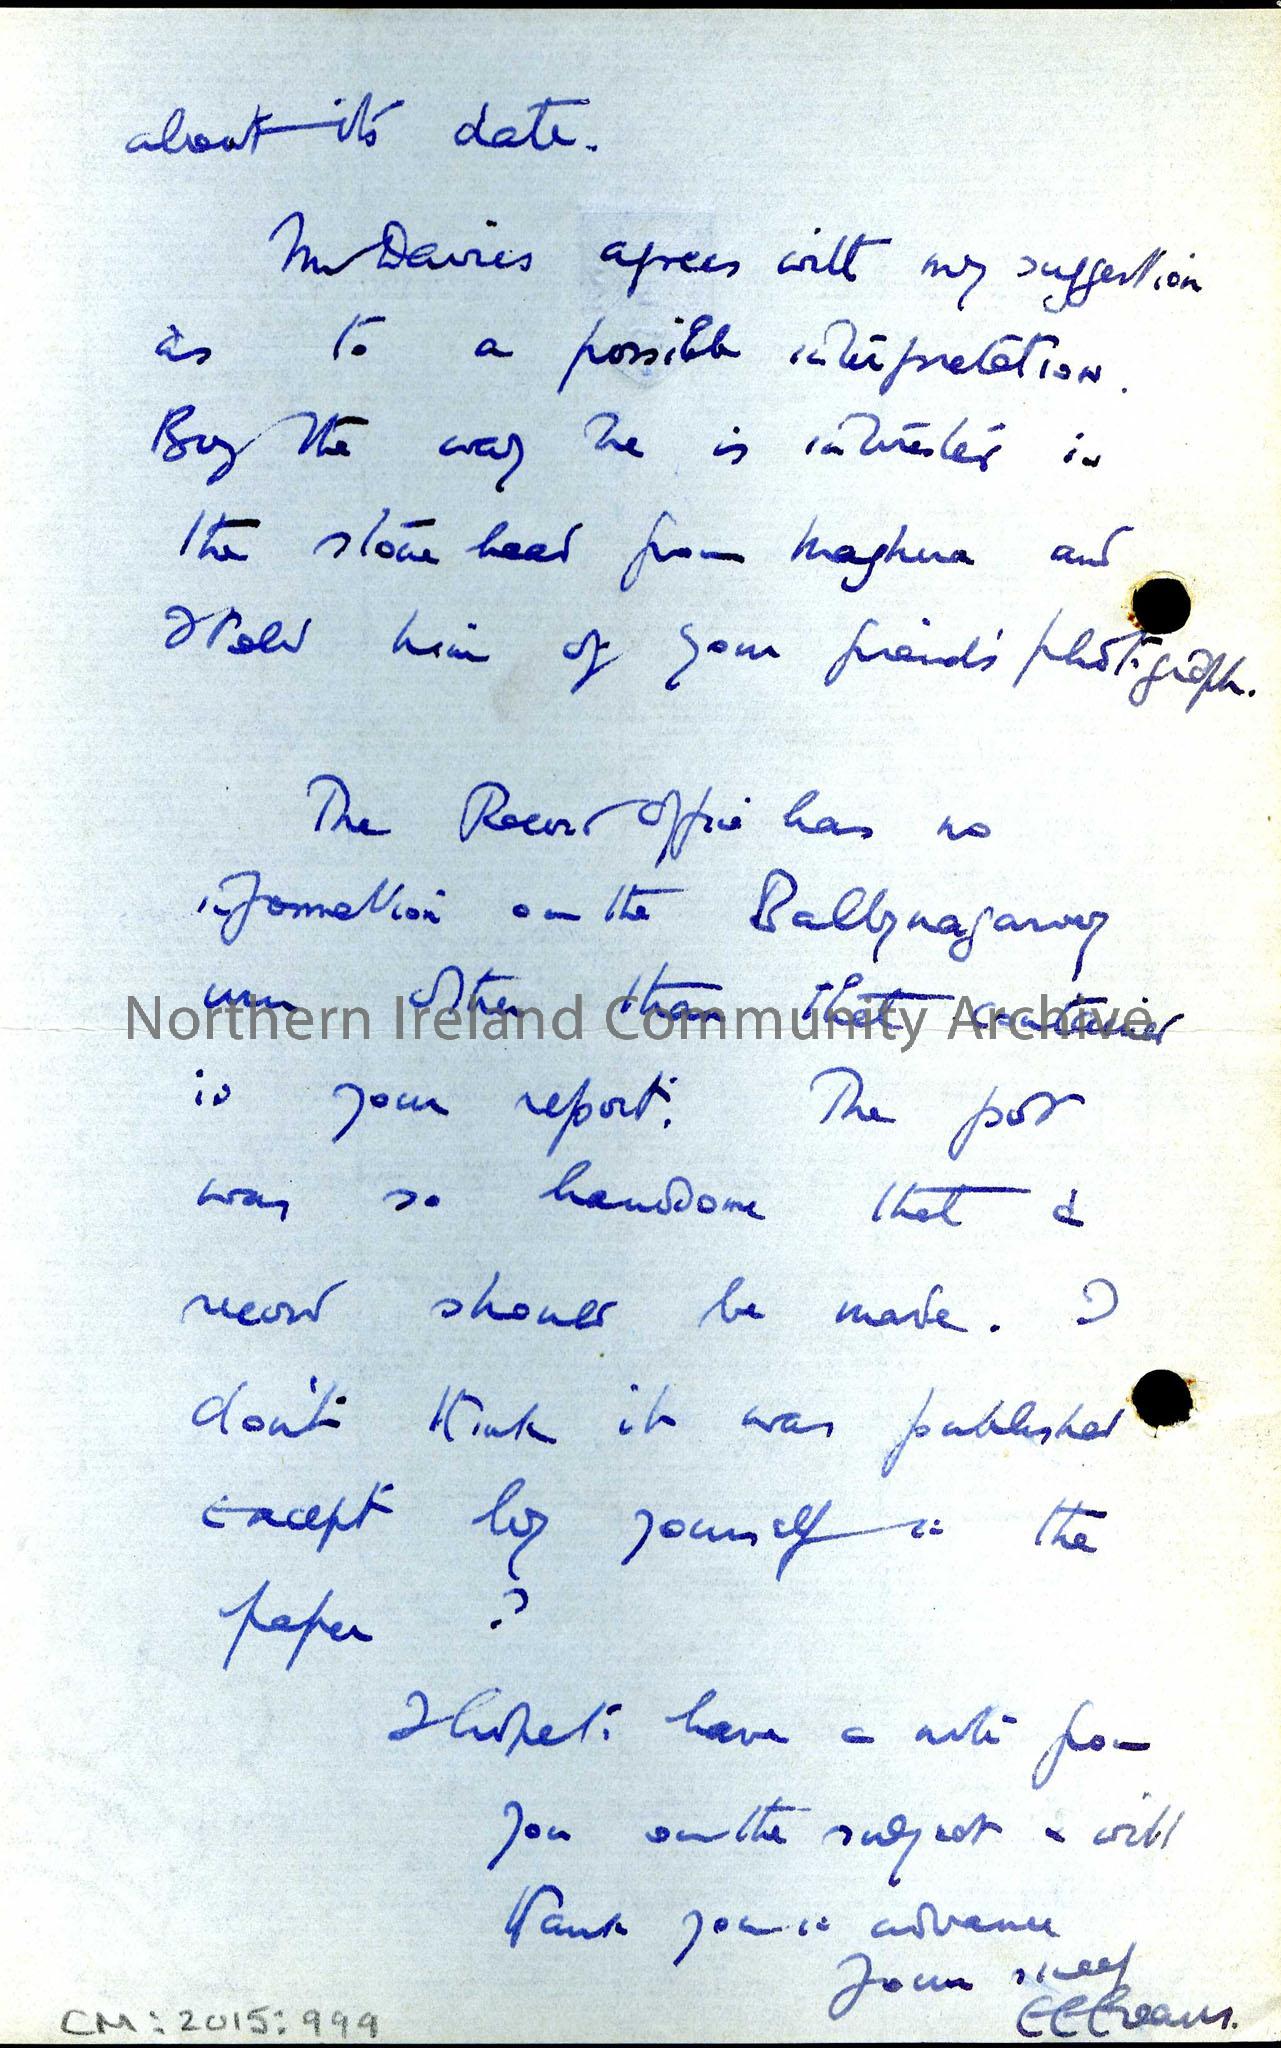 about its date.
Mr Davies agrees with my suggestion
as to a possible interpretation.
By the way he is interested in
the stone head from Maghera and
I told him of your friend's photograph.
The Record Office has no
information on the Ballynagarvey
urn other than that contained
in your report. The pot
was so handsome that a
record should be made. I
don't think it was published
except by yourself in the
paper ?
I hope to have a note from
you on the subject & will
thank you in advance
Yours
Northern Ireland Community Archive
CM:2015:999